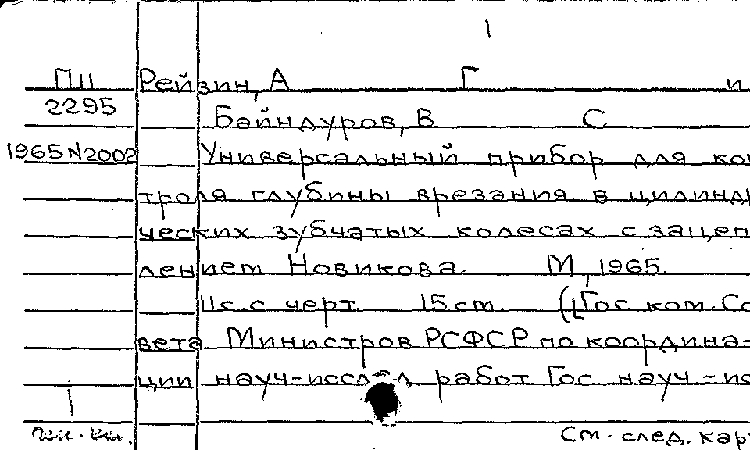 1
ПЩ Рейзин, А Г и
2295 Байндуров, В С
1965 N2002 Универсальный прибор для кон
троля глубины врезания в цилинд
ческих зубчатых колесах с зацеп
лением Новикова. М, 1965.
11с. с черт. 15 см. (Гос ком. Со
вета Министров РСФСР по координа-
ции науч-исслед работ Гос науч-ис
См. след. кар